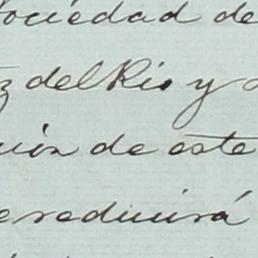 sociedad de
z del Rio y
ción de este
se reducirá